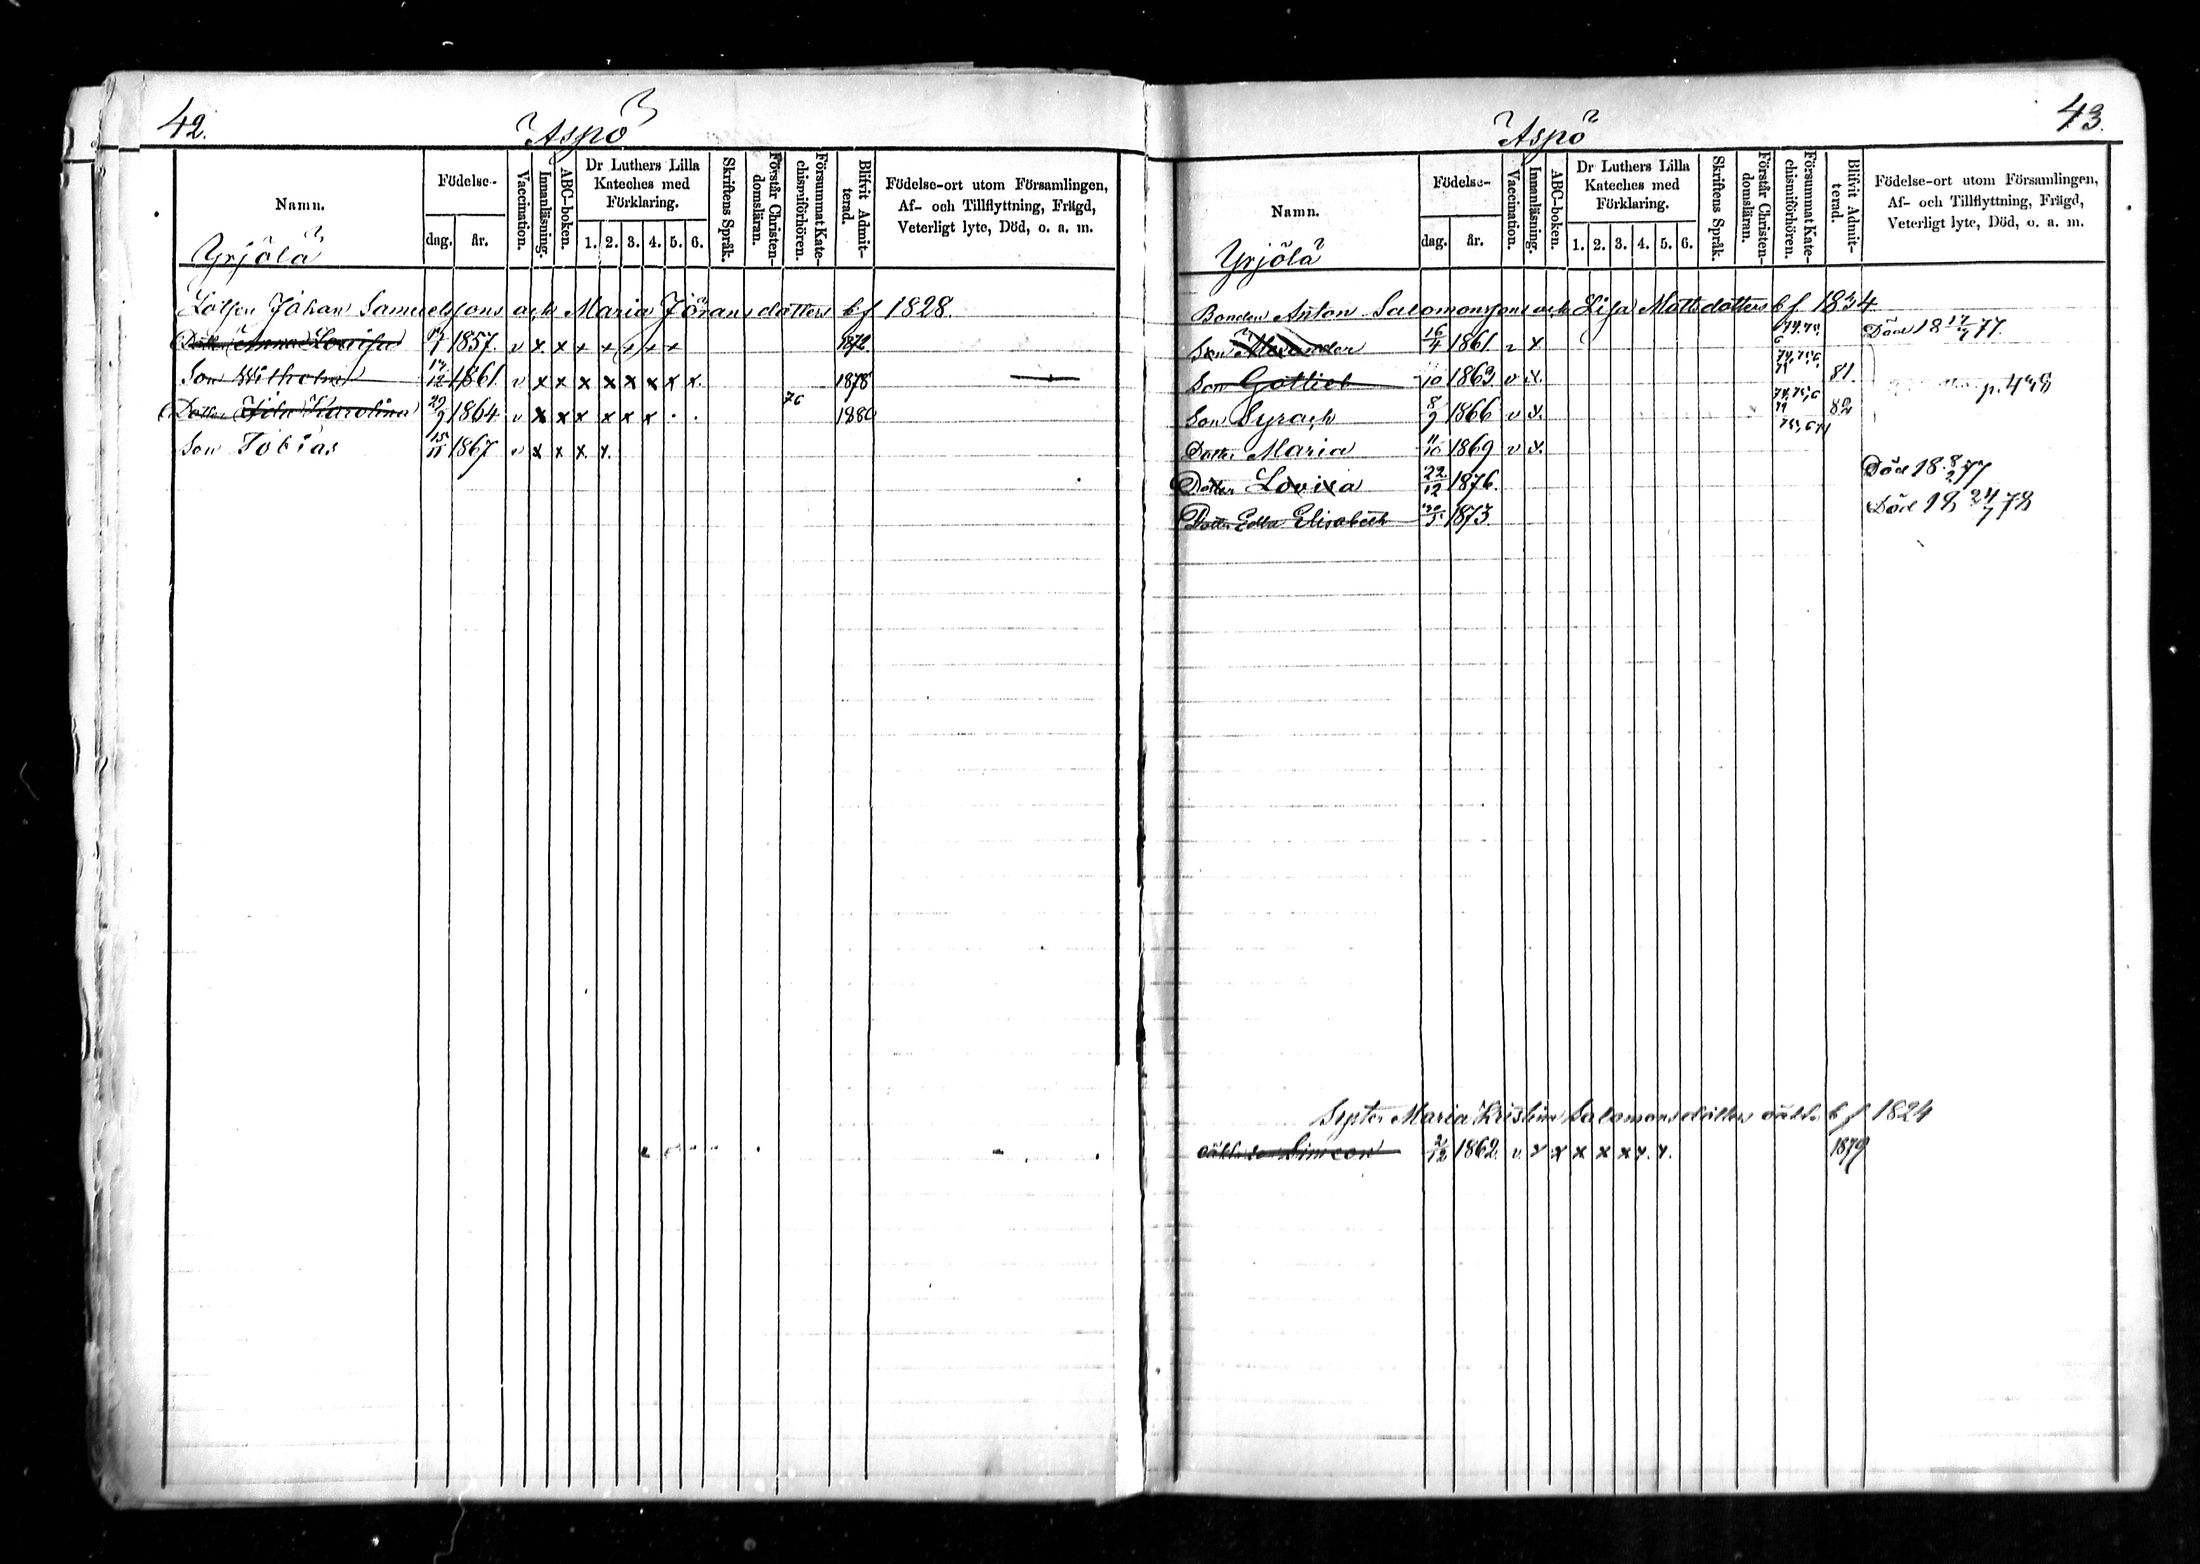 42.
Aspö
Namn.
Födelse-
dag.
år.
Vaccination.
Innanläsning.
ABC-boken.
Dr Luthers Lilla
Kateches med
Förklaring.
1. 2. 3. 4. 5. 6.
Skriftens Språk.
Förstår Christen-
domsläran.
Försummat Kate-
chismiförhören.
Blifvit Admit-
terad.
Födelse-ort utom Församlingen,
Af- och Tillflyttning, Frägd,
Veterligt lyte, Död, o. a. m.
Yrjölä
Lotsen Johan Samuelssons och Maria Jöransdotters bf 1828.
Dotter Anna Lovisa 1857 v x x x x x x x 1872
Son Wilhelm 17/12 1861 v x x x x x x x x. 1878
Dotter Karolina 29/9 1864 v x x x x x x . . 76 1880
Son Tobias 15/11 1867 v x x x x.
43.
Aspö
Namn.
Födelse-
dag.
år.
Vaccination.
Innanläsning.
ABC-boken.
Dr Luthers Lilla
Kateches med
Förklaring.
1. 2. 3. 4. 5. 6.
Skriftens Språk.
Förstår Christen-
domsläran.
Försummat Kate-
chismiförhören.
Blifvit Admit-
terad.
Födelse-ort utom Församlingen,
Af- och Tillflyttning, Frägd,
Veterligt lyte, Död, o. a. m.
Yrjölä
Bonden Anton Salomonssons och Lisa Mattsdotters bf 1834
Son Alexander 16/4 1861 v x. Död 18 17/7 77.
Son Gottlieb 1863 v x. 81. p. 438
Son Syrach 8/9 1866 v x. 82
Dotter Maria 11/10 1869 v x.
Dotter Lovisa 22/12 1876. Död 18 8/2 77
Dotter Edla Elisabeth 1873 Död 18 24/7 78
Syster Maria Kristina Salomonsdotters oäkta bf 1824
oäkta son Simeon 2/12 1862 v x x x x x x. x. 1879